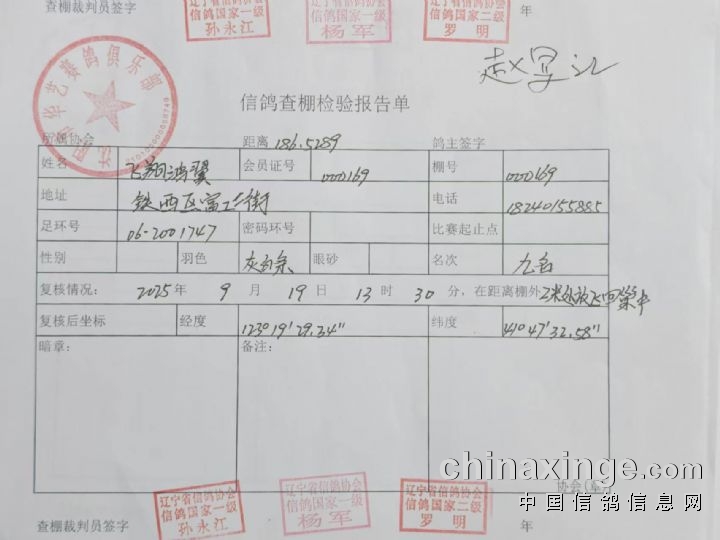 查棚裁判员签字
辽宁省信鸽协会
信鸽国家一级
孙永江
信鸽国家一级
杨军
辽宁省信鸽协会
信鸽国家二级
罗明
年
华艺赛鸽俱乐部
信鸽查棚检验报告单
所属协会 距离 186.5289 鸽主签字
姓名 飞翔鸿翼 会员证号 000169 棚号 000169
地址 铁西区富工街 电话 18240155885
足环号 06-2001747 密码环号 比赛起止点
性别 羽色 灰白条 眼砂 名次 九名
复核情况: 2025年 9 月 19 日 13 时 30 分,在距离棚外2米处放飞回巢中
复核后坐标 经度 123°19'29.34" 纬度 41°47'32.58"
暗章: 备注:
chinaxinge.com
协会(单
中国信鸽信息网
查棚裁判员签字
辽宁省信鸽协会
信鸽国家一级
孙永江
辽宁省信鸽协会
信鸽国家一级
杨军
辽宁省信鸽协会
信鸽国家二级
罗明
年